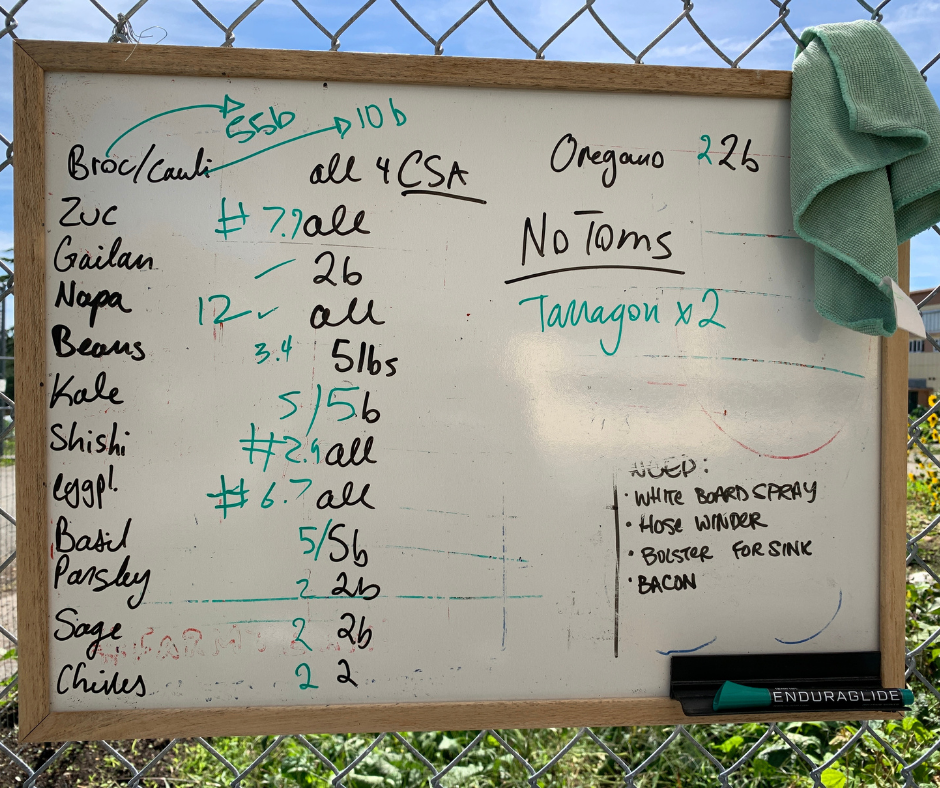 55b 10b
Broc/Cauli all 4 CSA
Zuc # 7.7 all
Gailan ✓ 2b
Napa 12 ✓ all
Beans 3.4 5lbs
Kale 5/5b
Shishi #2.9 all
eggpl. # 6.7 all
Basil 5/5b
Parsley 2 2b
Sage 2 2b
Chives 2 2
Oregano 2 2b
No Toms
Tarragon x2
NEED:
· WHITE BOARD SPRAY
· HOSE WINDER
· BOLSTER FOR SINK
· BACON
ENDURAGLIDE